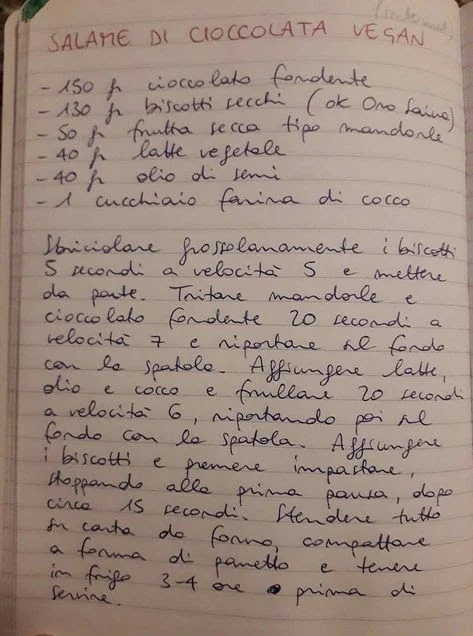 (internet)
SALAME DI CIOCCOLATA VEGAN
- 150 gr cioccolato fondente
- 130 gr biscotti secchi (ok Oro Saiwa)
- 50 gr frutta secca tipo mandorle
- 40 gr latte vegetale
- 40 gr olio di semi
- 1 cucchiaio farina di cocco
Sbriciolare grossolanamente i biscotti
5 secondi a velocità 5 e mettere
da parte. Tritare mandorle e
cioccolato fondente 20 secondi a
velocità 7 e riportare sul fondo
con la spatola. Aggiungere latte,
olio e cocco e frullare 20 secondi
a velocità 6, riportando poi sul
fondo con la spatola. Aggiungere
i biscotti e premere impastare,
stoppando alla prima pausa, dopo
circa 15 secondi. Stendere tutto
su carta da forno, compattare
a forma di panetto e tenere
in frigo 3-4 ore prima di
servire.